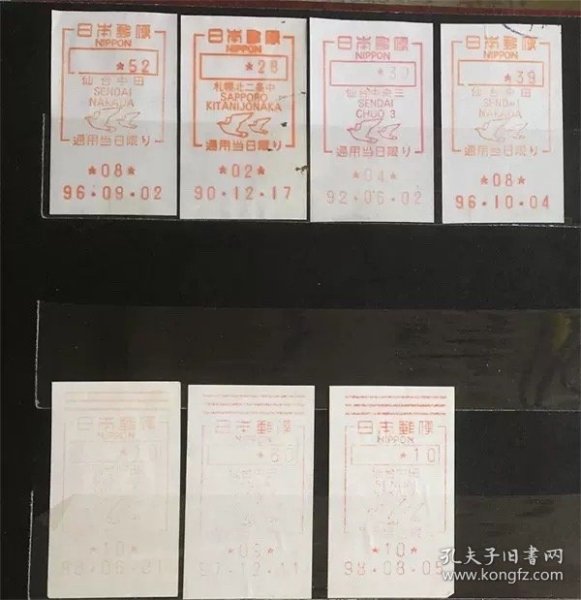 日本郵便
NIPPON
*52
仙台中田
SENDAI
NAKADA
通用当日限り
*08*
96·09·02
日本郵便
NIPPON
*28
札幌北二条中
SAPPORO
KITANIJONAKA
通用当日限り
*02*
90·12·17
日本郵便
NIPPON
*39
仙台中央三
SENDAI
CHUO 3
通用当日限り
*04*
92·06·02
日本郵便
NIPPON
*39
仙台中田
SENDAI
NAKADA
通用当日限り
*08*
96·10·04
日本郵便
NIPPON
*10*
98·06·21
日本郵便
NIPPON
*60
仙台中田
97·12·11
日本郵便
NIPPON
*10
仙台中田
SENDAI
*10*
98·08·05
孔夫子旧书网
www.kongfz.com